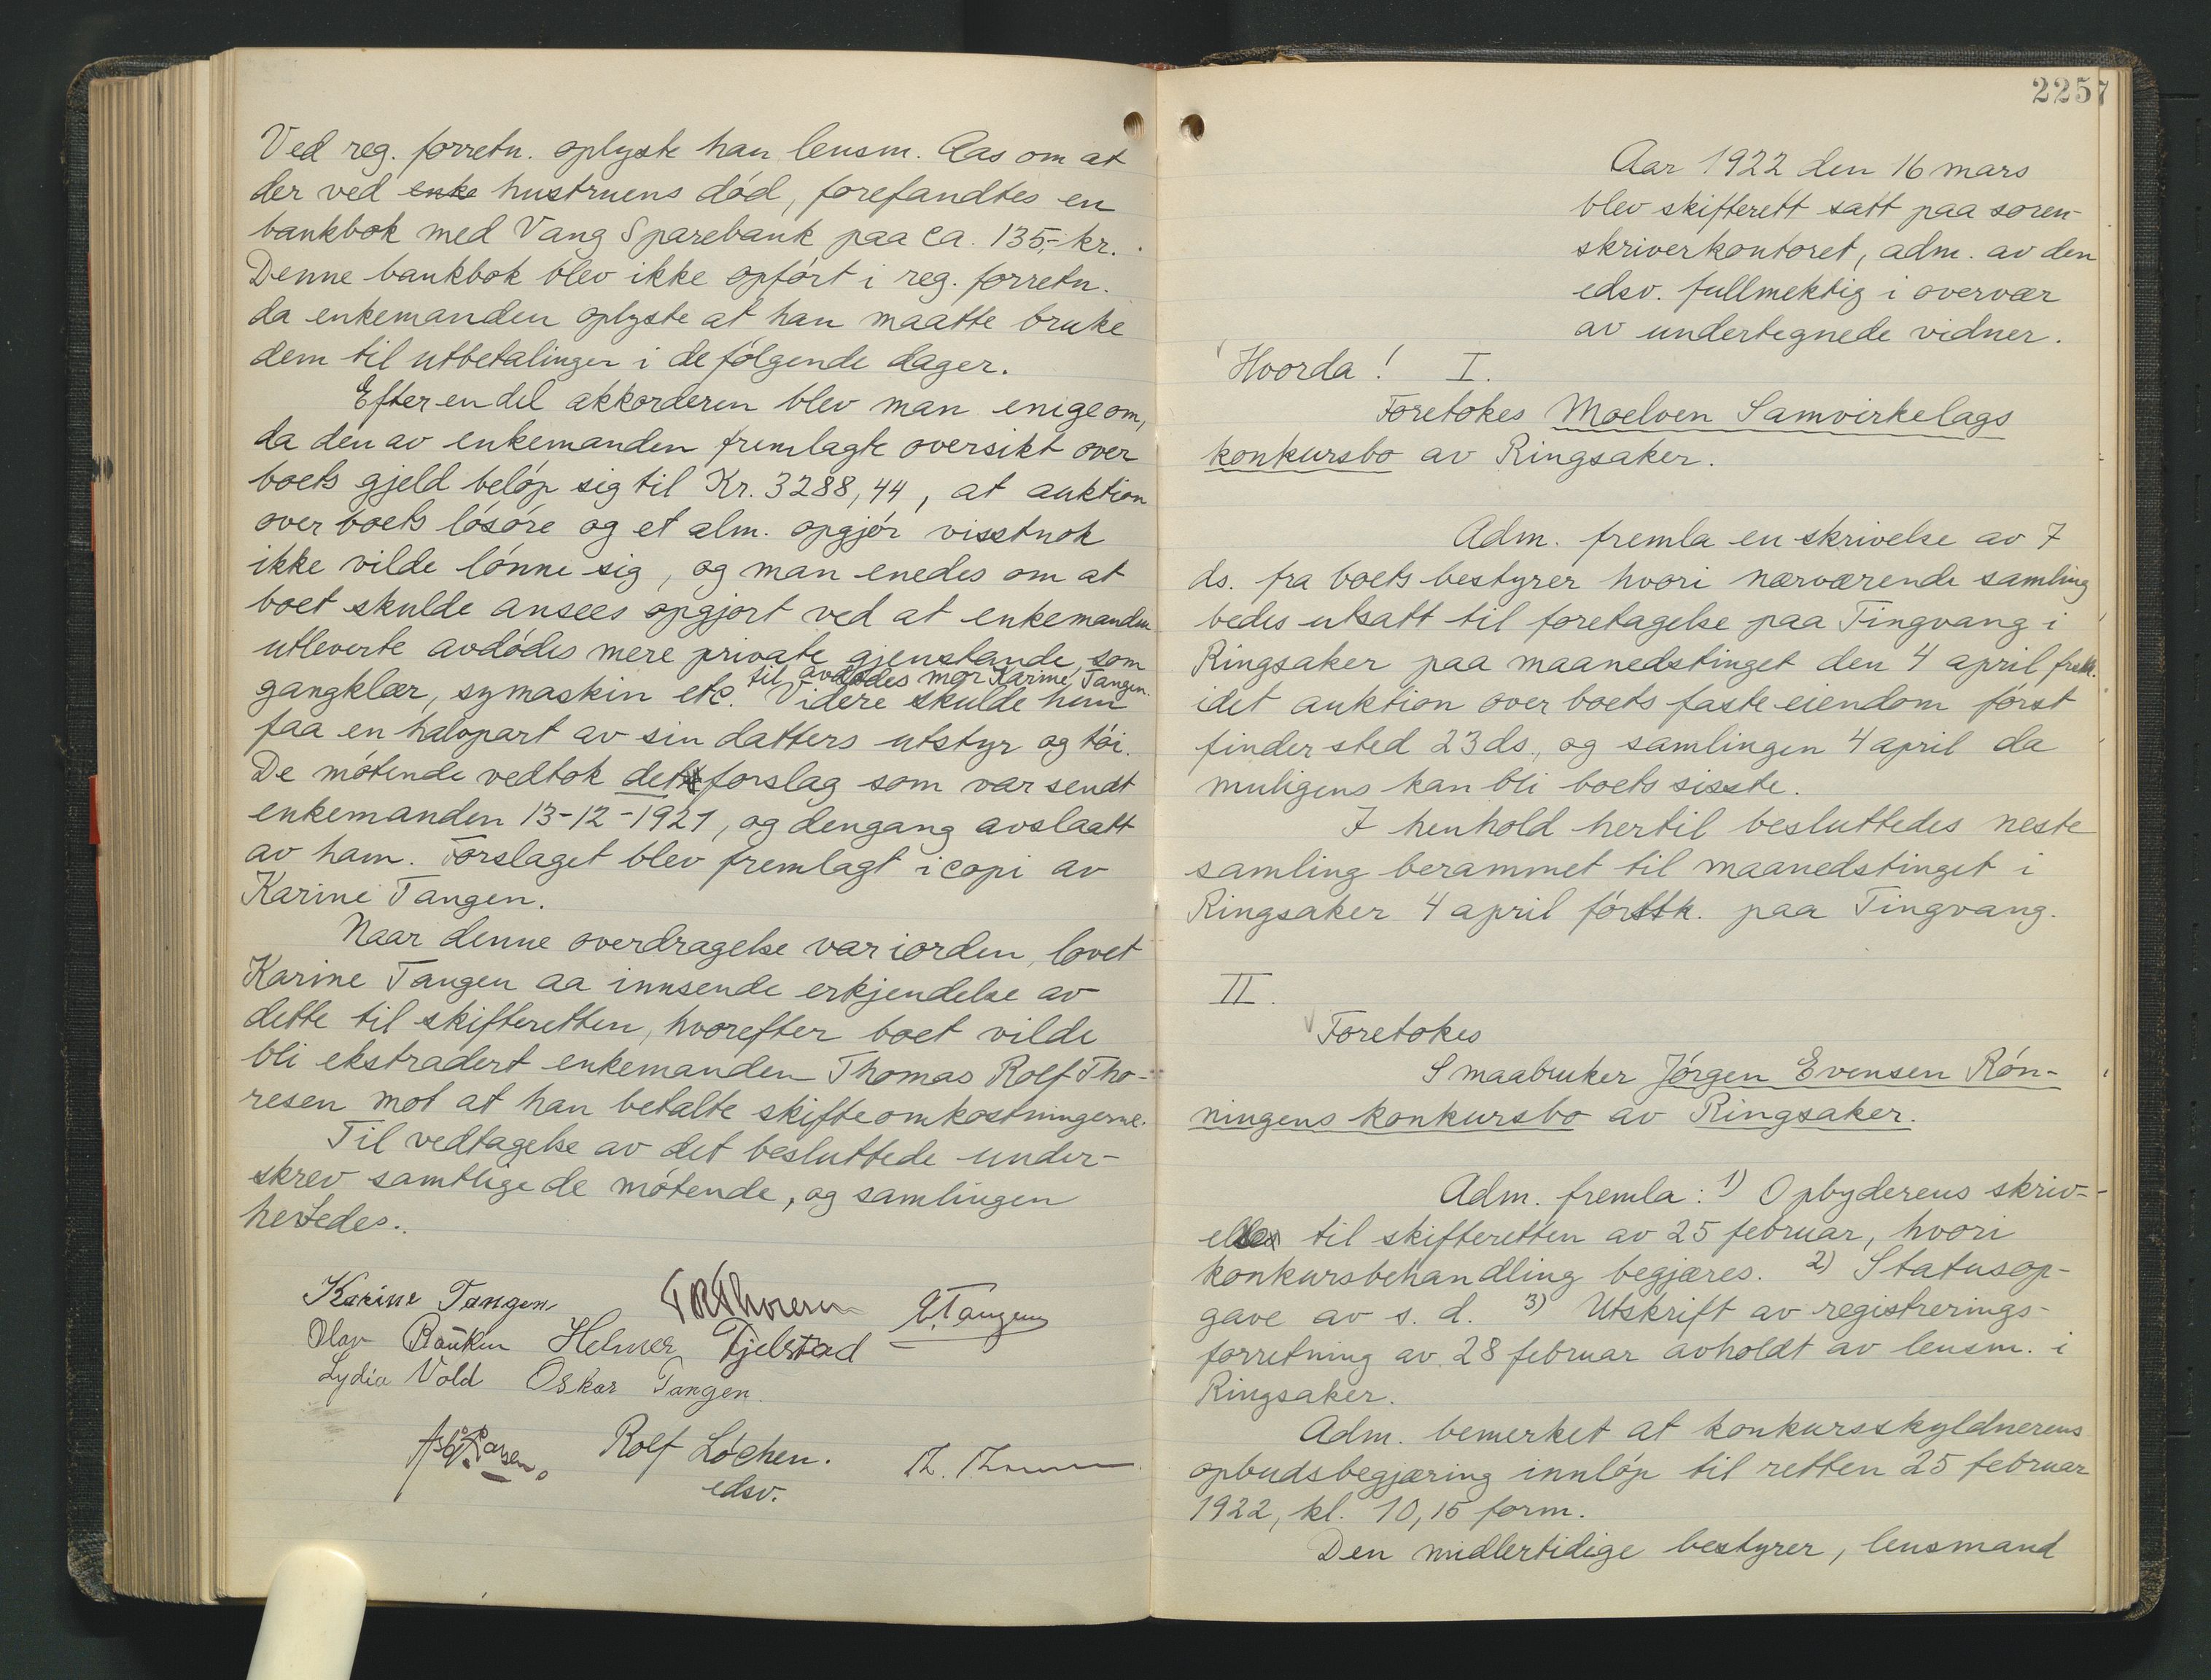 Ved reg. forretn. oplyste han lensm. Aas om at
der ved enke hustruens död, forefandtes en
bankbok med Vang Sparebank paa ca. 135,- kr.
Denne bankbok blev ikke opfört i reg. forretn.
da enkemanden oplyste at han maatte bruke
dem til utbetalinger i de fölgende dager.
Efter en del akkorderen blev man enige om,
da den av enkemanden fremlagte oversikt over
boets gjeld belöp sig til Kr. 3288,44, at auktion
over boets lösöre og et alm. opgjör visstnok
ikke vilde lönne sig, og man enedes om at
boet skulde ansees opgjort ved at enkemanden
utleverte avdödes mere private gjenstande som
til avdödes mor Karine Tangen.
gangklær, symaskin etc. Videre skulde hun
faa en halvpart av sin datters utstyr og töi.
De mötende vedtok det forslag som var sendt
enkemanden 13-12-1921, og dengang avslaatt
av ham. Forslaget blev fremlagt i copi av
Karine Tangen.
Naar denne overdragelse var iorden, lovet
Karine Tangen aa innsende erkjendelse av
dette til skifteretten, hvorefter boet vilde
bli ekstradert enkemanden Thomas Rolf Tho-
resen mot at han betalte skifteomkostningerne.
Til vedtagelse av det besluttede under-
skrev samtlige de mötende, og samlingen
hevedes.
Karine Tangen E. Tangen
Olav Bruken Helmer Fjelstad
Lydia Vold Oskar Tangen.
Rolf Löchen.
edsv.
2257
Aar 1922 den 16 mars
blev skifterett satt paa soren-
skriverkontoret, adm. av den
edsv. fullmektig i overvær
av undertegnede vidner.
Hvorda! I.
Foretokes Moelven Samvirkelags
konkursbo av Ringsaker.
Adm. fremla en skrivelse av 7
ds. fra boets bestyrer hvori nærværende samling
bedes utsatt til foretagelse paa Tingvang i
Ringsaker paa maanedstinget den 4 april frstk.
idet auktion over boets faste eiendom först
finder sted 23 ds., og samlingen 4 april da
muligens kan bli boets sisste.
I henhold hertil besluttedes neste
samling berammet til maanedstinget i
Ringsaker 4 april förstk. paa Tingvang.
II.
Foretokes
Smaabruker Jörgen Evensen Rön-
ningens konkursbo av Ringsaker.
Adm. fremla: 1) Opbyderens skriv-
else til skifteretten av 25 februar, hvori
konkursbehandling begjæres. 2) Statusop-
gave av s. d. 3) Utskrift av registrerings-
forretning av 28 februar avholdt av lensm. i
Ringsaker.
Adm. bemerket at konkursskyldnerens
opbudsbegjæring innlöp til retten 25 februar
1922, kl. 10,15 form.
Den midlertidige bestyrer, lensmand